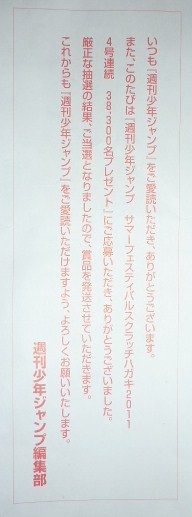 いつも『週刊少年ジャンプ』をご愛読いただき、ありがとうございます。
また、このたびは『週刊少年ジャンプ　サマーフェスティバルスクラッチハガキ2011
4号連続　38,300名プレゼント』にご応募いただき、ありがとうございました。
厳正な抽選の結果、ご当選となりましたので、賞品を発送させていただきます。
これからも『週刊少年ジャンプ』をご愛読いただけますよう、よろしくお願いいたします。
週刊少年ジャンプ編集部